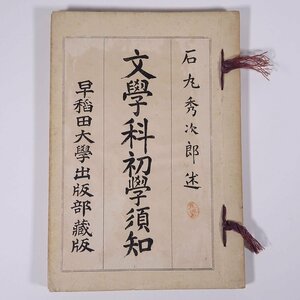 石丸秀次郎述
文學科初學須知
早稻田大學出版部藏版